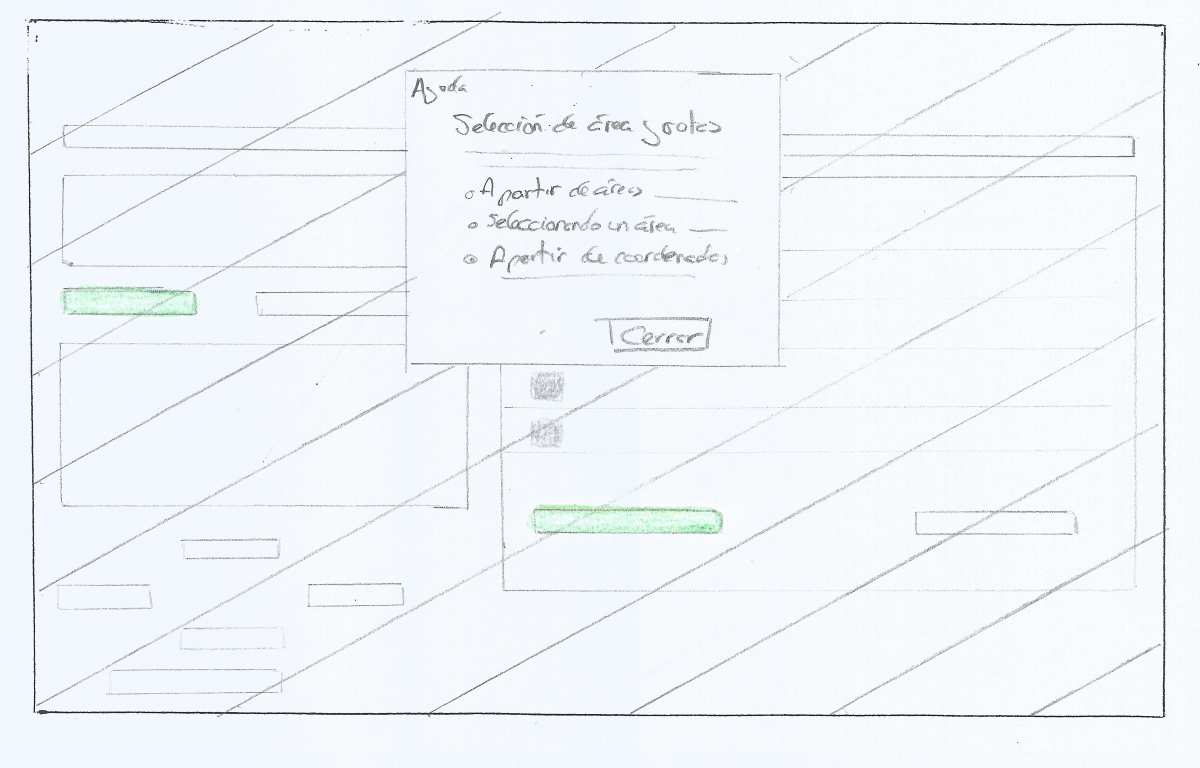 Ayuda
Selección de área y rotas
• A partir de áreas
• Seleccionando un área
• A partir de coordenadas
Cerrar